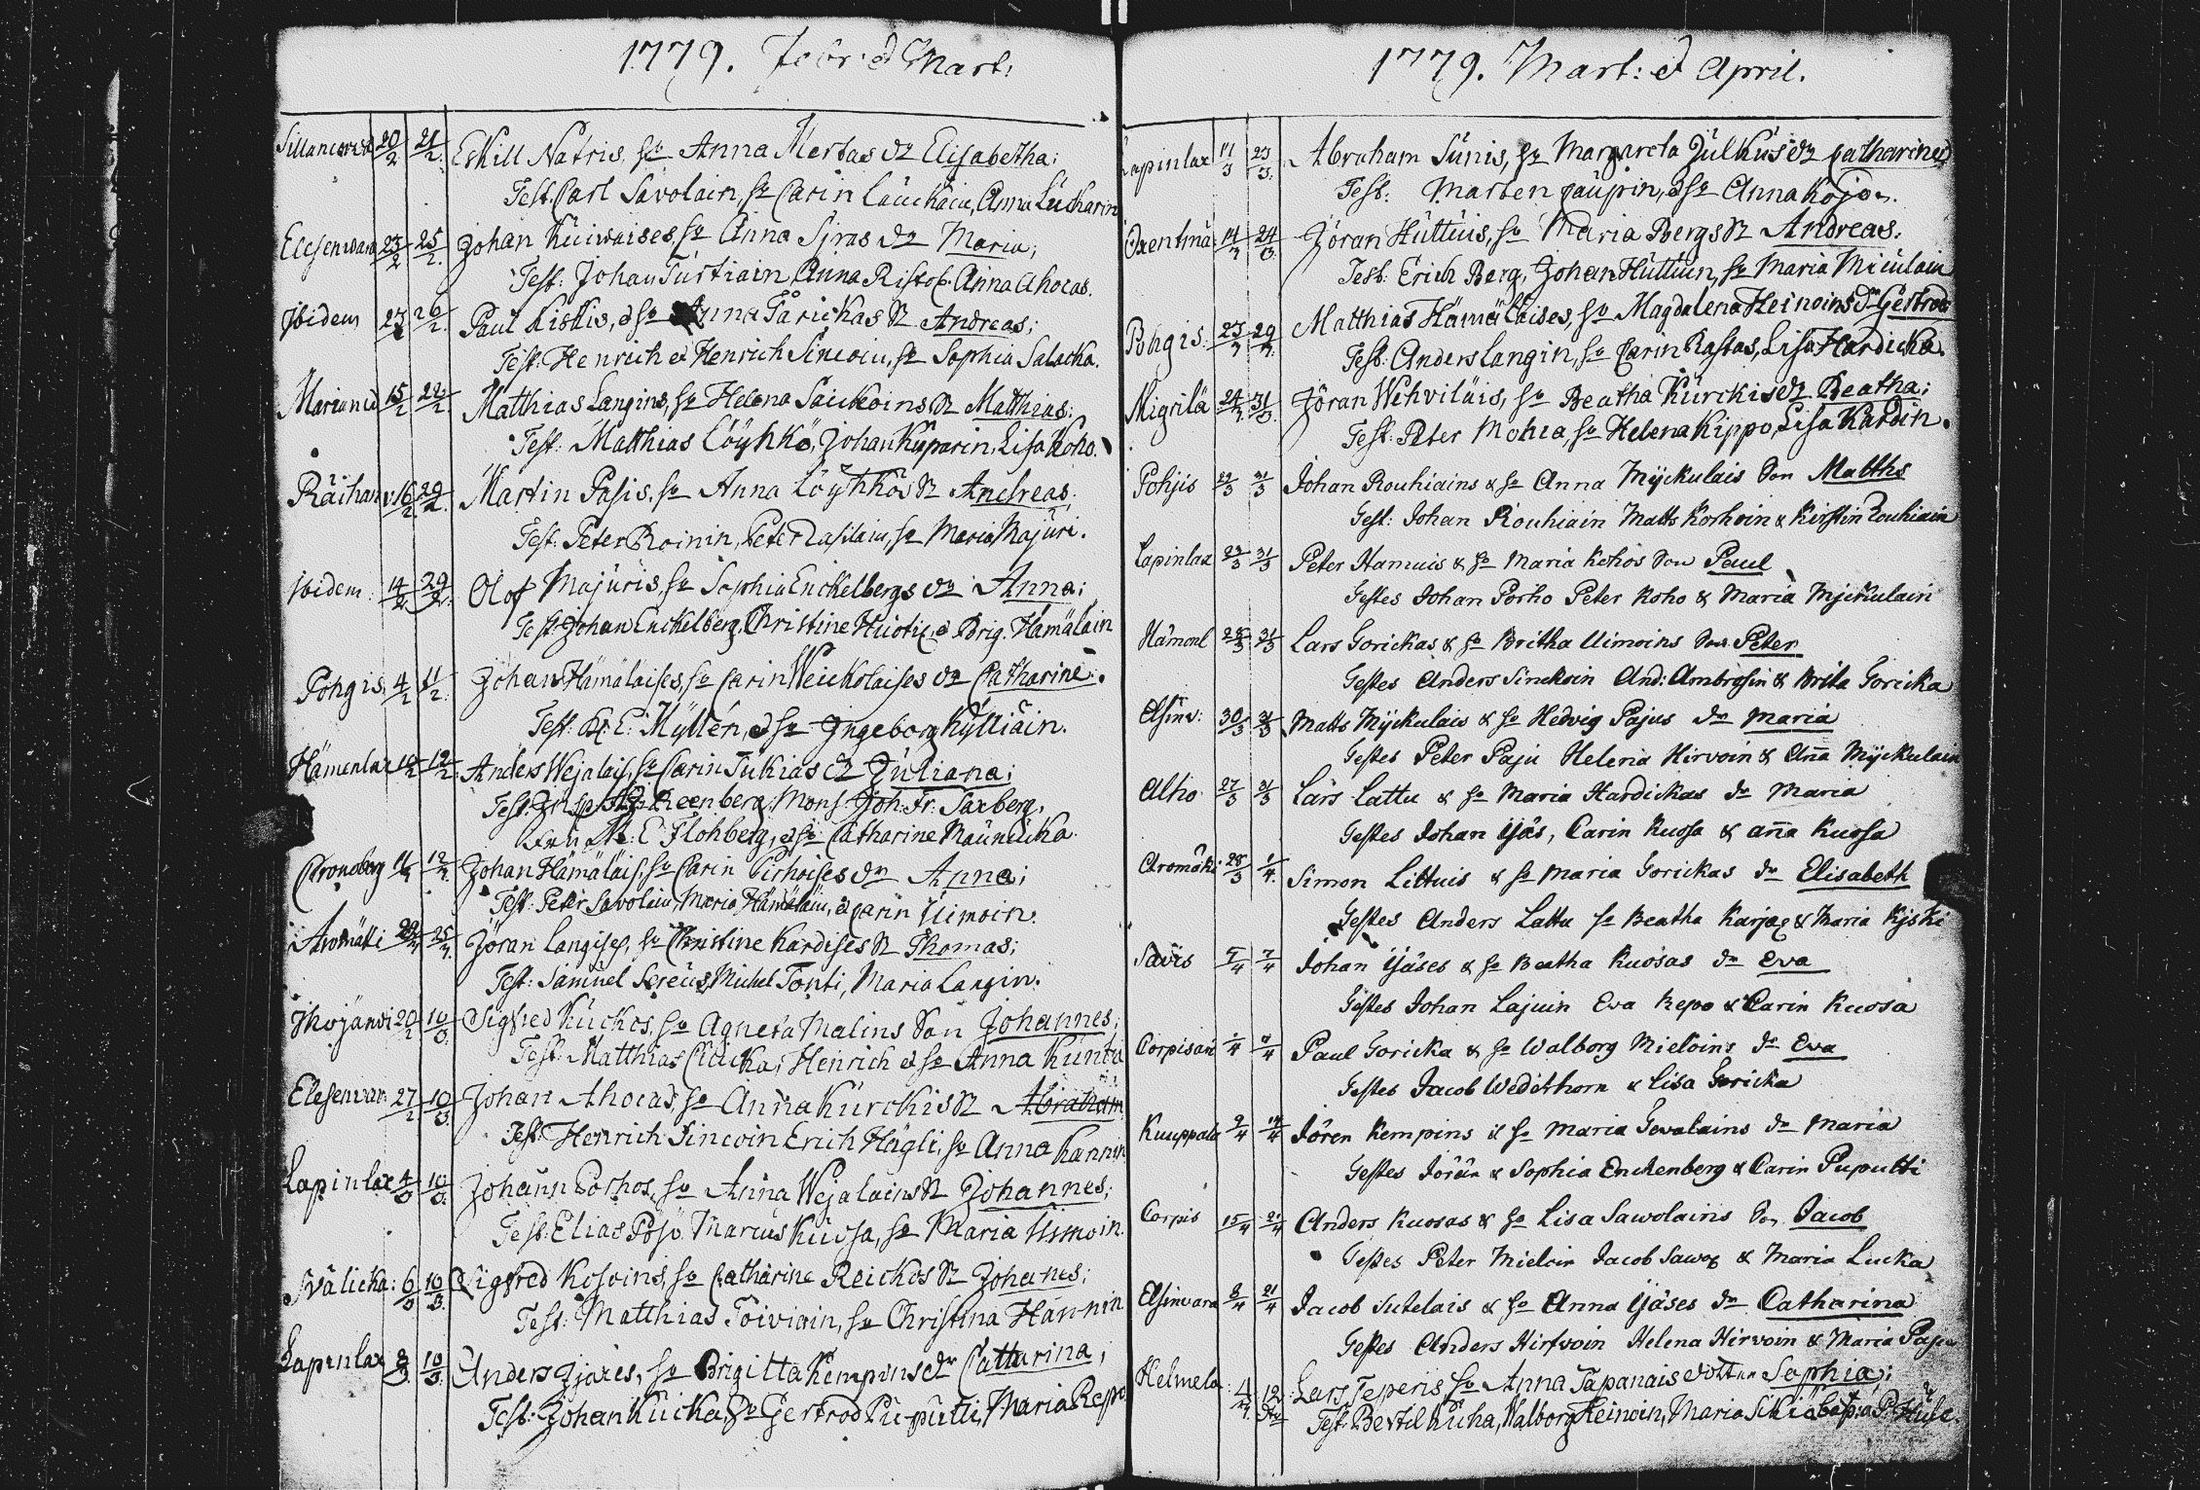 1779. Febr: et Mart:
Sillancorva 20/2 21/2. Eskill Natris, hu Anna Mertas dr Elisabetha;
Test. Carl Savolain, hu Carin Lauckain, Anna Lucharin
Elesenvara 23/2 25/2. Johan Kuivaises, hu Anna Siras dr Maria;
Test: Johan Turtiain Anna Ristox. Anna Ahocas.
Ibidem 23/2 26/2. Paul Kiskis, et hu Anna Tarickas S. Andreas;
Test: Henrich et Henrich Sincoin, hu Sophia Salacka.
15/2 22/2. Matthias Langins, hu Helena Sauckoins S. Matthias;
Test: Matthias Löyhkö, Johan Kuparin, Lisa Koho.
Räihanv. 16/2 29/2. Martin Pasis, hu Anna Löyhkös S. Andreas;
Test: Peter Roinin, Peter Rasilain, hu Maria Majuri.
Ibidem: 14/2 29/2. Olof Majuris, hu Sophia Enckelbergs dr Anna;
Test: Johan Enckelberg, Christine Huotix, et Brig. Hämäläin
Pohgis. 4/2 11/2. Johan Hämäläises, hu Carin Weickolaises dr Catharine;
Test: E: Myllén, et hu Ingeborg Kylliäin.
Hämenlax 12/2. Anders Wejalais, hu Carin Tukias dr Juliana;
Test: Insp. Reenberg, Mons. Joh: Fr: Saxberg,
M: E Flohberg, et hu Catharine Maunucka.
Croneberg 11/2 12/2. Johan Hämäläis, hu Carin Pirhoises dr Anna;
Test: Peter Savolain, Maria Hämäläin, et Carin Uimoin.
Aromäki 25/2. Jöran Langises, hu Christine Kardises S. Thomas;
Test: Samuel Sereus, Michel Tonti, Maria Langin.
Ihojärvi 20/2 10/3. Sigfred Kuckos, hu Agneta Malins Son Johannes;
Test: Matthias Clucka, Henrich et hu Anna Kuntu
Elesenvar. 27/2 10/3. Johan Ahocas, hu Anna Kurckis S. Abraham
Test: Henrich Sincoin, Erich Hägli, hu Anna Kannin
Lapinlax 4/3 10/3. Johann Porhos, hu Anna Wejalains S. Johannes;
Test: Elias Pösö. Marcus Kuosa, hu Maria Uimoin.
Ivälicka: 6/3 10/3. Sigfred Kosoins, hu Catharine Reickos S. Johanes;
Test: Matthias Toiviain, hu Christina Hannin
Lapinlax 8/3 10/3. Anders Ijäxes, hu Brigitta Kempins dr Catharina;
Test: Johan Kucka, hu Gertrod Puputti, Maria Repo
1779. Mart: et April.
Lapinlax 11/3 23/3. Abraham Sunis, hu Margareta Julkus dr Catharine;
Test: Marten Caupin, et hu Anna Kojon.
14/3 24/3. Jöran Huttuis, hu Maria Bergs S. Andreas.
Test: Erich Berg, Johan Huttuin, hu Maria Miculain
Pohgis. 23/3 29/3. Matthias Hämäläises, hu Magdalena Heinoins dr Gertrod
Test: Anders Langin, hu Carin Rastas, Lisa Hardicka.
Migrilä 24/3 31/3. Jöran Wehviläis, hu Beatha Kurckis dr Beatha;
Test: Peter Mohia, hu Helena Kippo, Lisa Kardin.
Pohjis 31/3 Johan Rouhiains & hu Anna Myckulais Son Matths
Test: Johan Rouhiain Matts Korhoin & Kirstin Rouhiain
Lapinlax 31/3 Peter Hamuis & hu Maria Kohos Son Paul
Testes Johan Porho Peter Koho & Maria Myckulain
Hämenl 28/3 31/3 Lars Gorickas & hu Britha Uimoins Son Peter
Testes Anders Sinckoin And: Ambrosin & Brita Goricka
Elsinv: 30/3 31/3 Matts Myckulais & hu Hedvig Pajus dr Maria
Testes Peter Paju Helena Hirvoin & Aña Myckulain
Alho 27/3 31/3 Lars Lattu & hu Maria Hardickas dr Maria
Testes Johan Yjäs, Carin Kuosa & aña Kuosa
Aromäki 28/3 1/4. Simon Littuis & hu Maria Gorickas dr Elisabeth
Testes Anders Lattu hu Beatha Karjax & Maria Kyski
Savis 5/4 7/4 Johan Yjäses & hu Beatha Kuosas dr Eva
Testes Johan Lajuin Eva Repo & Carin Kuosa
Corpisari Paul Goricka & hu Walborg Mieloins dr Eva
Testes Jacob Wedethorn & Lisa Goricka
Kuuppala 9/4 Jören Kempins & hu Maria Gevalains dr Maria
Testes Jörän & Sophia Enckenberg & Carin Puputti
Corpis 15/4 21/4 Anders Kuosas & hu Lisa Sawolains Son Jacob
Testes Peter Mieloin Jacob Sawox & Maria Lucka
Elsinvara 8/4 21/4 Jacob Sutelais & hu Anna Yjäses dr Catharina
Testes Anders Hirfvoin Helena Hirvoin & Maria Paju
Helmela Lars Teperis, hu Anna Tapanais dotter Sophia;
Test: Bertil Kuha, Walborg Heinoin, Maria